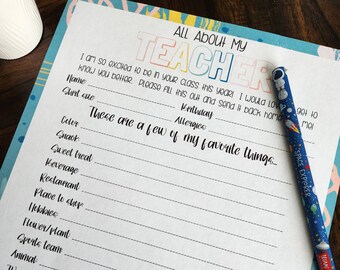 ALL ABOUT MY
TEACHER
I am so excited to be in your class this year! I would love to get to
know you better. Please fill this out and send it back home me!
Name Birthday
Shirt size Allergies
These are a few of my favorite things...
Color
Snack
Sweet treat
Beverage
Restaurant
Place to shop
Hobbies
Flower/plant
Sports team
Animal